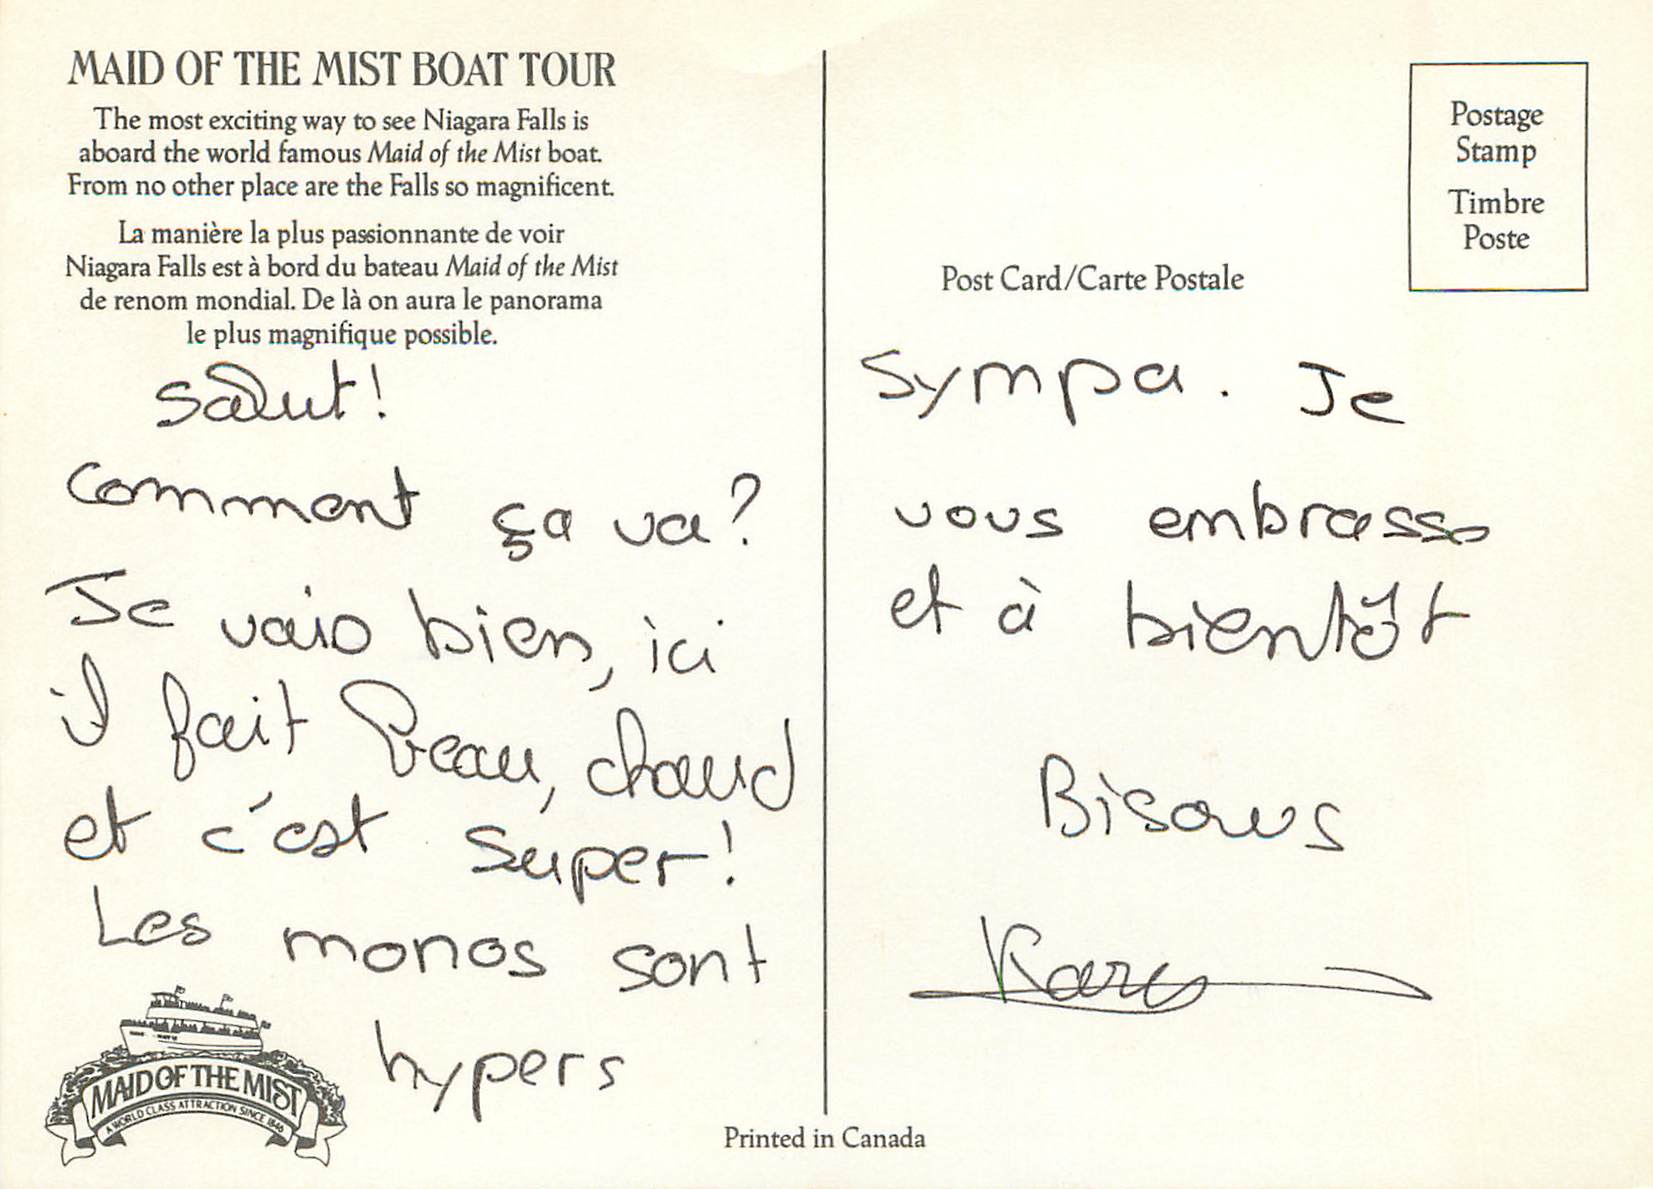 MAID OF THE MIST BOAT TOUR
The most exciting way to see Niagara Falls is
aboard the world famous Maid of the Mist boat.
From no other place are the Falls so magnificent.
La manière la plus passionnante de voir
Niagara Falls est à bord du bateau Maid of the Mist
de renom mondial. De là on aura le panorama
le plus magnifique possible.
Salut!
Comment ça va?
Je vais bien, ici
il fait Beau, chaud
et c'est super!
Les monos sont
hypers
MAID OF THE MIST
A WORLD CLASS ATTRACTION SINCE 1846
Postage
Stamp
Timbre
Poste
Post Card/Carte Postale
sympa. Je
vous embrasse
et à bientôt
Bisous
Printed in Canada